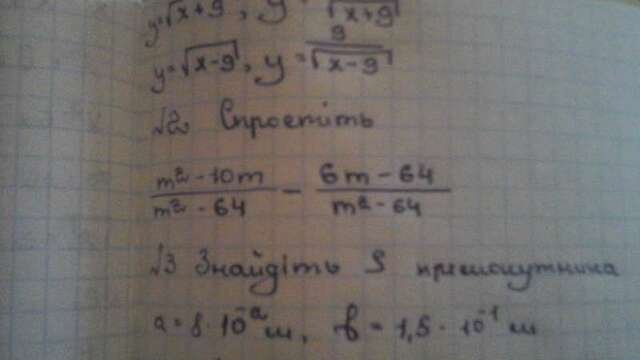 y=√x+9, y = √x+9
y=√x-9, y = 9/√x-9
№2 Спростіть
m²-10m/m²-64 - 6m-64/m²-64
№3 Знайдіть S прямокутника
a=8·10⁻² м, b=1,5·10⁻¹ м